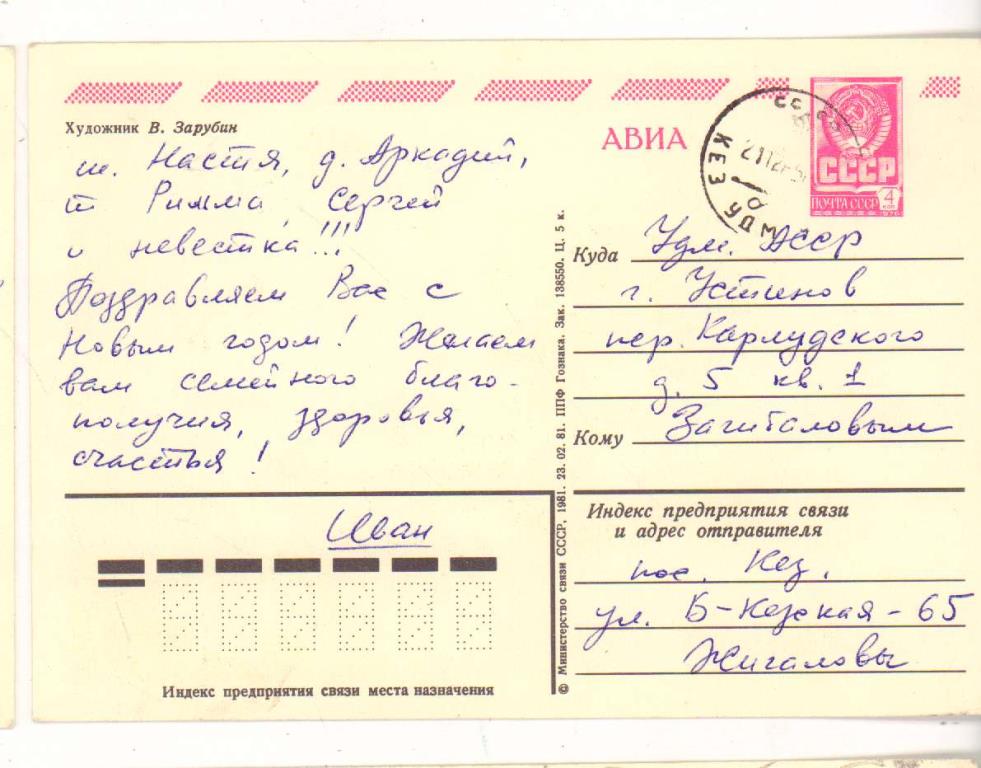 Художник В. Зарубин
т. Настя, д. Аркадий,
т Римма, Сергей
и невестка!!!
Поздравляем Вас с
Новым годом! Желаем
вам семейного благо-
получия, здоровья,
счастья!
Иван
Индекс предприятия связи места назначения
© Министерство связи СССР, 1981. 23. 02. 81. ППФ Гознака. Зак. 138550. Ц. 5 к.
АВИА
КЕЗ УДМ
СССР
ПОЧТА СССР 4 коп
1976
Куда Удм. АССР
г. Устинов
пер. Карлудского
д. 5 кв. 1
Кому Загибаловым
Индекс предприятия связи
и адрес отправителя
пос. Кез,
ул. Б-Кезская - 65
Жигаловы